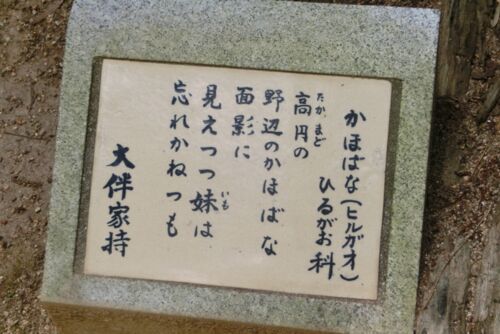 かほばな(ヒルガオ)
ひるがお科
高円の
たかまど
野辺のかほばな
面影に
見えつつ妹は
いも
忘れかねつも
大伴家持